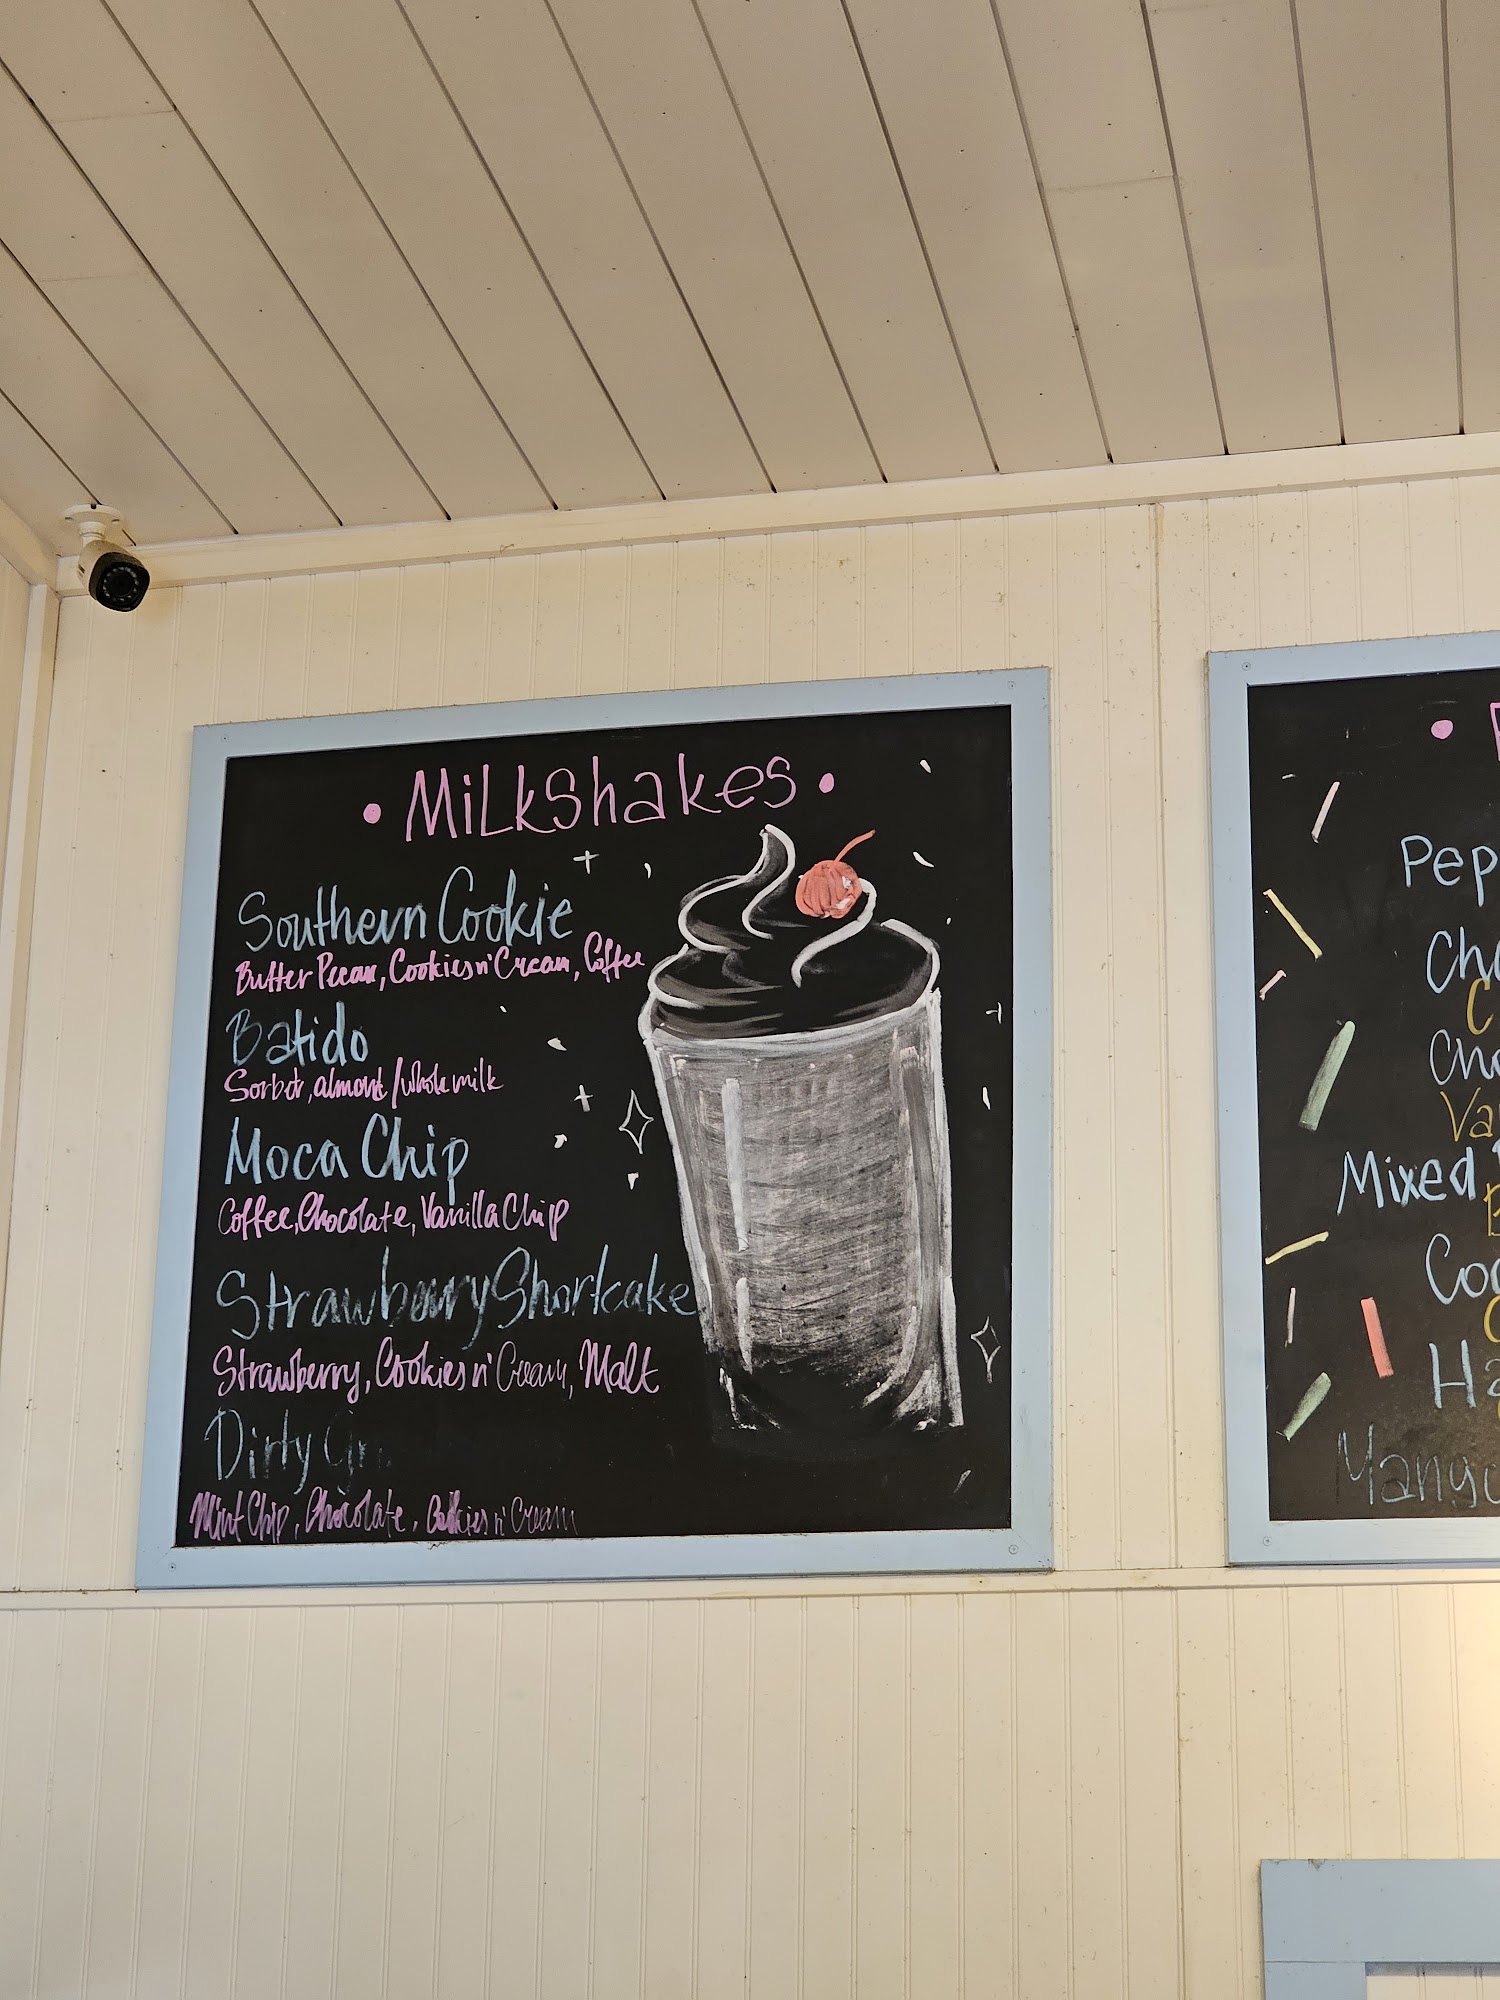 • Milkshakes •
Southern Cookie
Butter Pecan, Cookies n' Cream, Coffee
Batido
Sorbet, almond/whole milk
Moca Chip
Coffee, Chocolate, Vanilla Chip
Strawberry Shortcake
Strawberry, Cookies n' Cream, Malt
Dirty Gr
Mint Chip, Chocolate, Cookies n' Cream
Pep
Cho
C
Cho
Va
Mixed
B
Coo
C
Ha
Mango